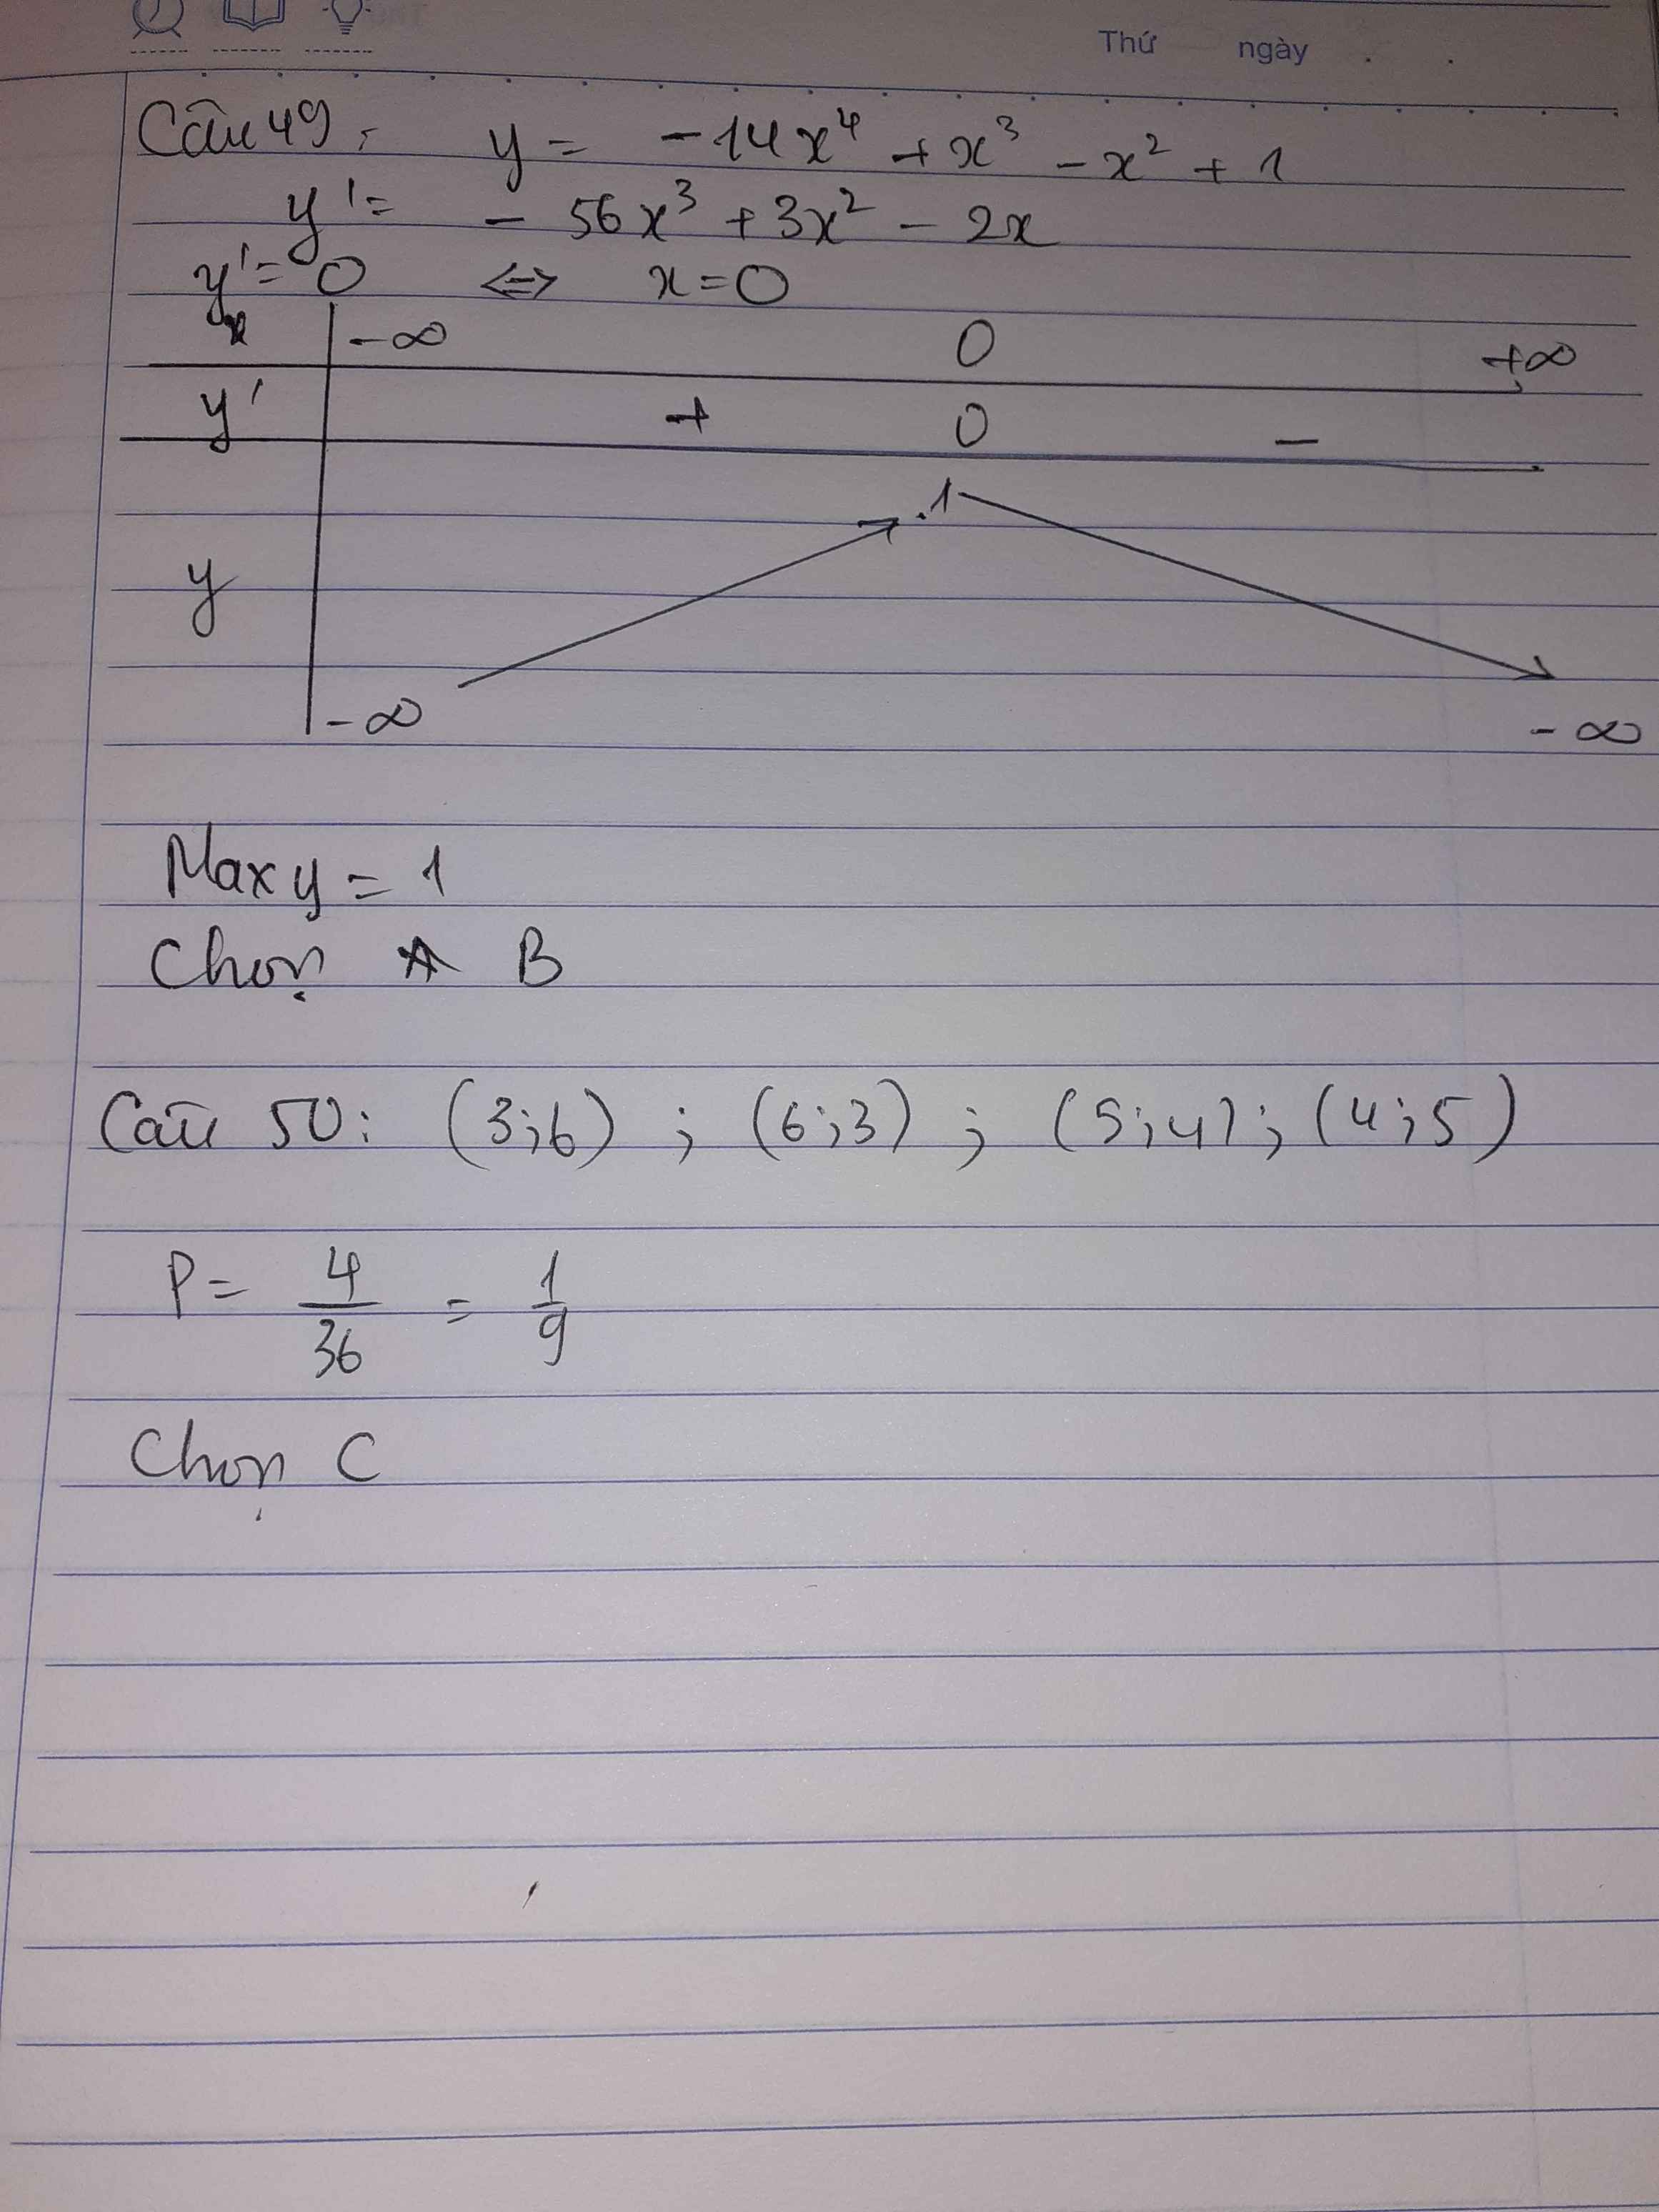 Thứ ngày . .
Câu 49: y = -14x⁴ + x³ - x² + 1
y' = - 56x³ + 3x² - 2x
y' = 0 <=> x = 0
x -∞ 0 +∞
y' + 0 -
1
y
-∞ -∞
Max y = 1
Chọn B
Câu 50: (3;6) ; (6;3) ; (5;4) ; (4;5)
P = 4/36 = 1/9
Chọn C